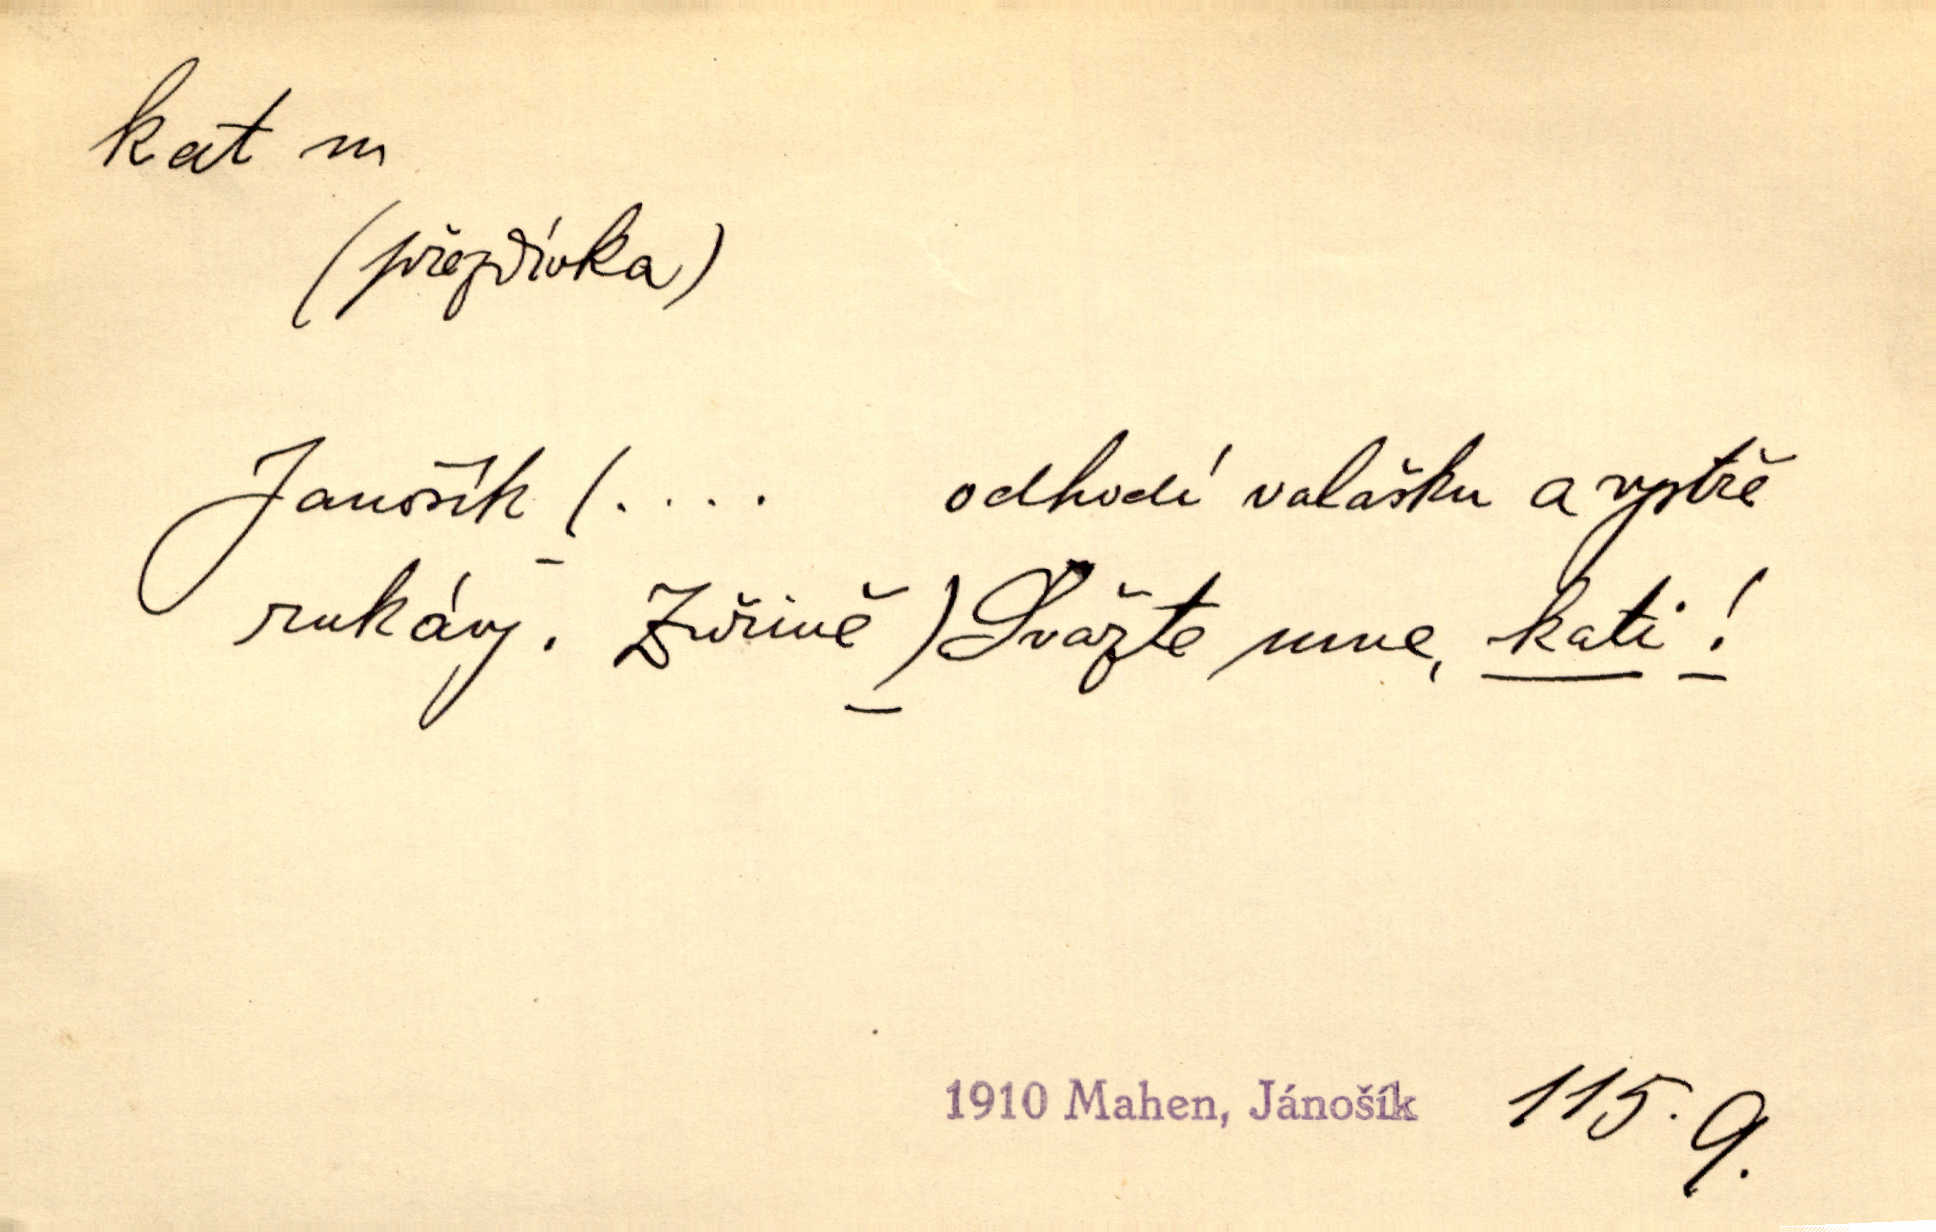 kat m
(přezdívka)
Janošík (.... odhodí valašku a vystře
rukávy. Zuřivě) Svažte mne, kati!
1910 Mahen, Jánošík 115. 9.